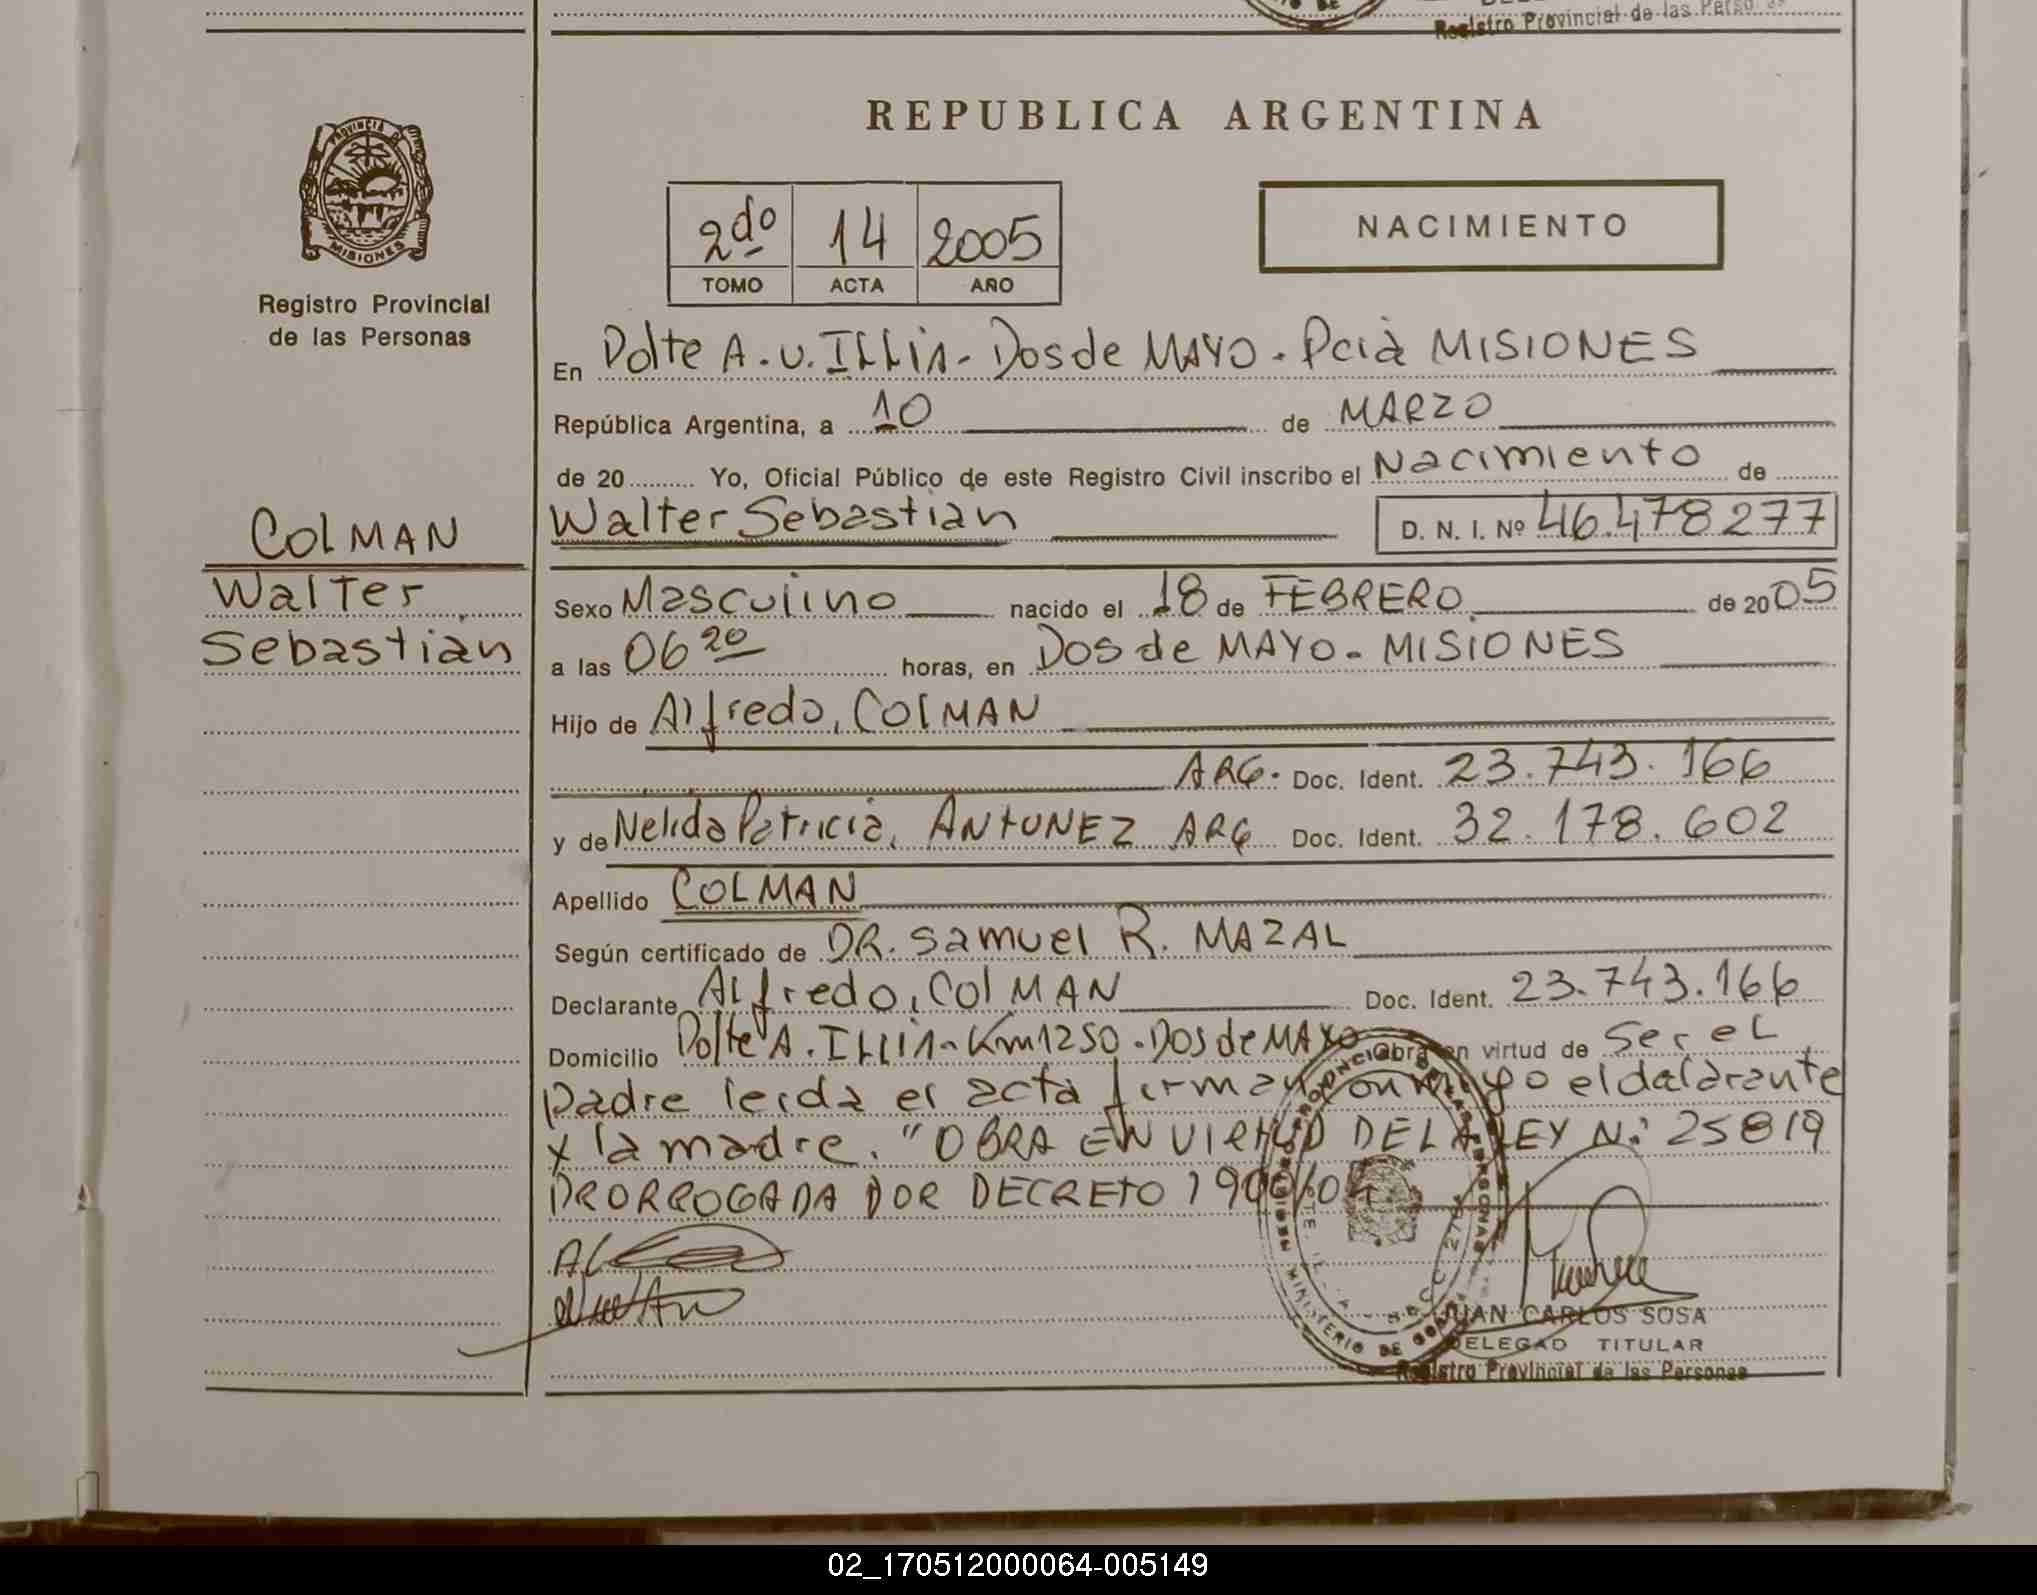 Registro Provincial de las Perso
REPUBLICA ARGENTINA
PROVINCIA DE
MISIONES
Registro Provincial
de las Personas
2do 14 2005
TOMO ACTA AÑO
NACIMIENTO
En Pdte A. U. ILLIA - Dos de MAYO - Pcia MISIONES
República Argentina, a 10 de MARZO
de 20 Yo, Oficial Público de este Registro Civil inscribo el Nacimiento de
Walter Sebastian D. N. I. Nº 46.478277
COLMAN
Walter
Sebastian
Sexo Masculino nacido el 18 de FEBRERO de 2005
a las 06 20 horas, en Dos de MAYO - MISIONES
Hijo de Alfredo, COLMAN
ARG. Doc. Ident. 23.743.166
y de Nelida Patricia, ANTUNEZ ARG Doc. Ident. 32.178.602
Apellido COLMAN
Según certificado de DR. Samuel R. MAZAL
Declarante Alfredo, COLMAN Doc. Ident. 23.743.166
Domicilio Pdte A. ILLIA - Km 1250 - Dos de MAYO Obra en virtud de Ser el
padre leida el acta firman conmigo el dalarante
y la madre. "OBRA EN VIRTUD DE LA LEY N: 25819
PRORROGADA POR DECRETO 1900/04
JUAN CARLOS SOSA
DELEGAD TITULAR
Registro Provincial de las Personas
02_170512000064-005149